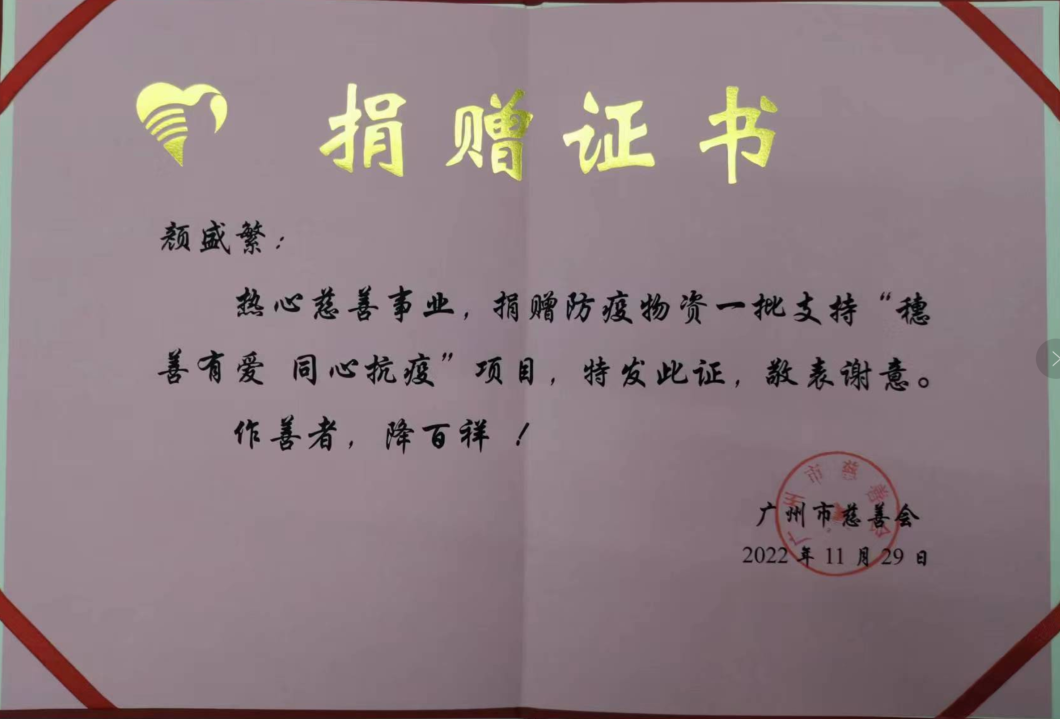 捐赠证书
颜盛繁：
热心慈善事业，捐赠防疫物资一批支持“穗
善有爱 同心抗疫”项目，特发此证，敬表谢意。
作善者，降百祥！
广州市慈善会
2022年11月29日
广州市慈善会